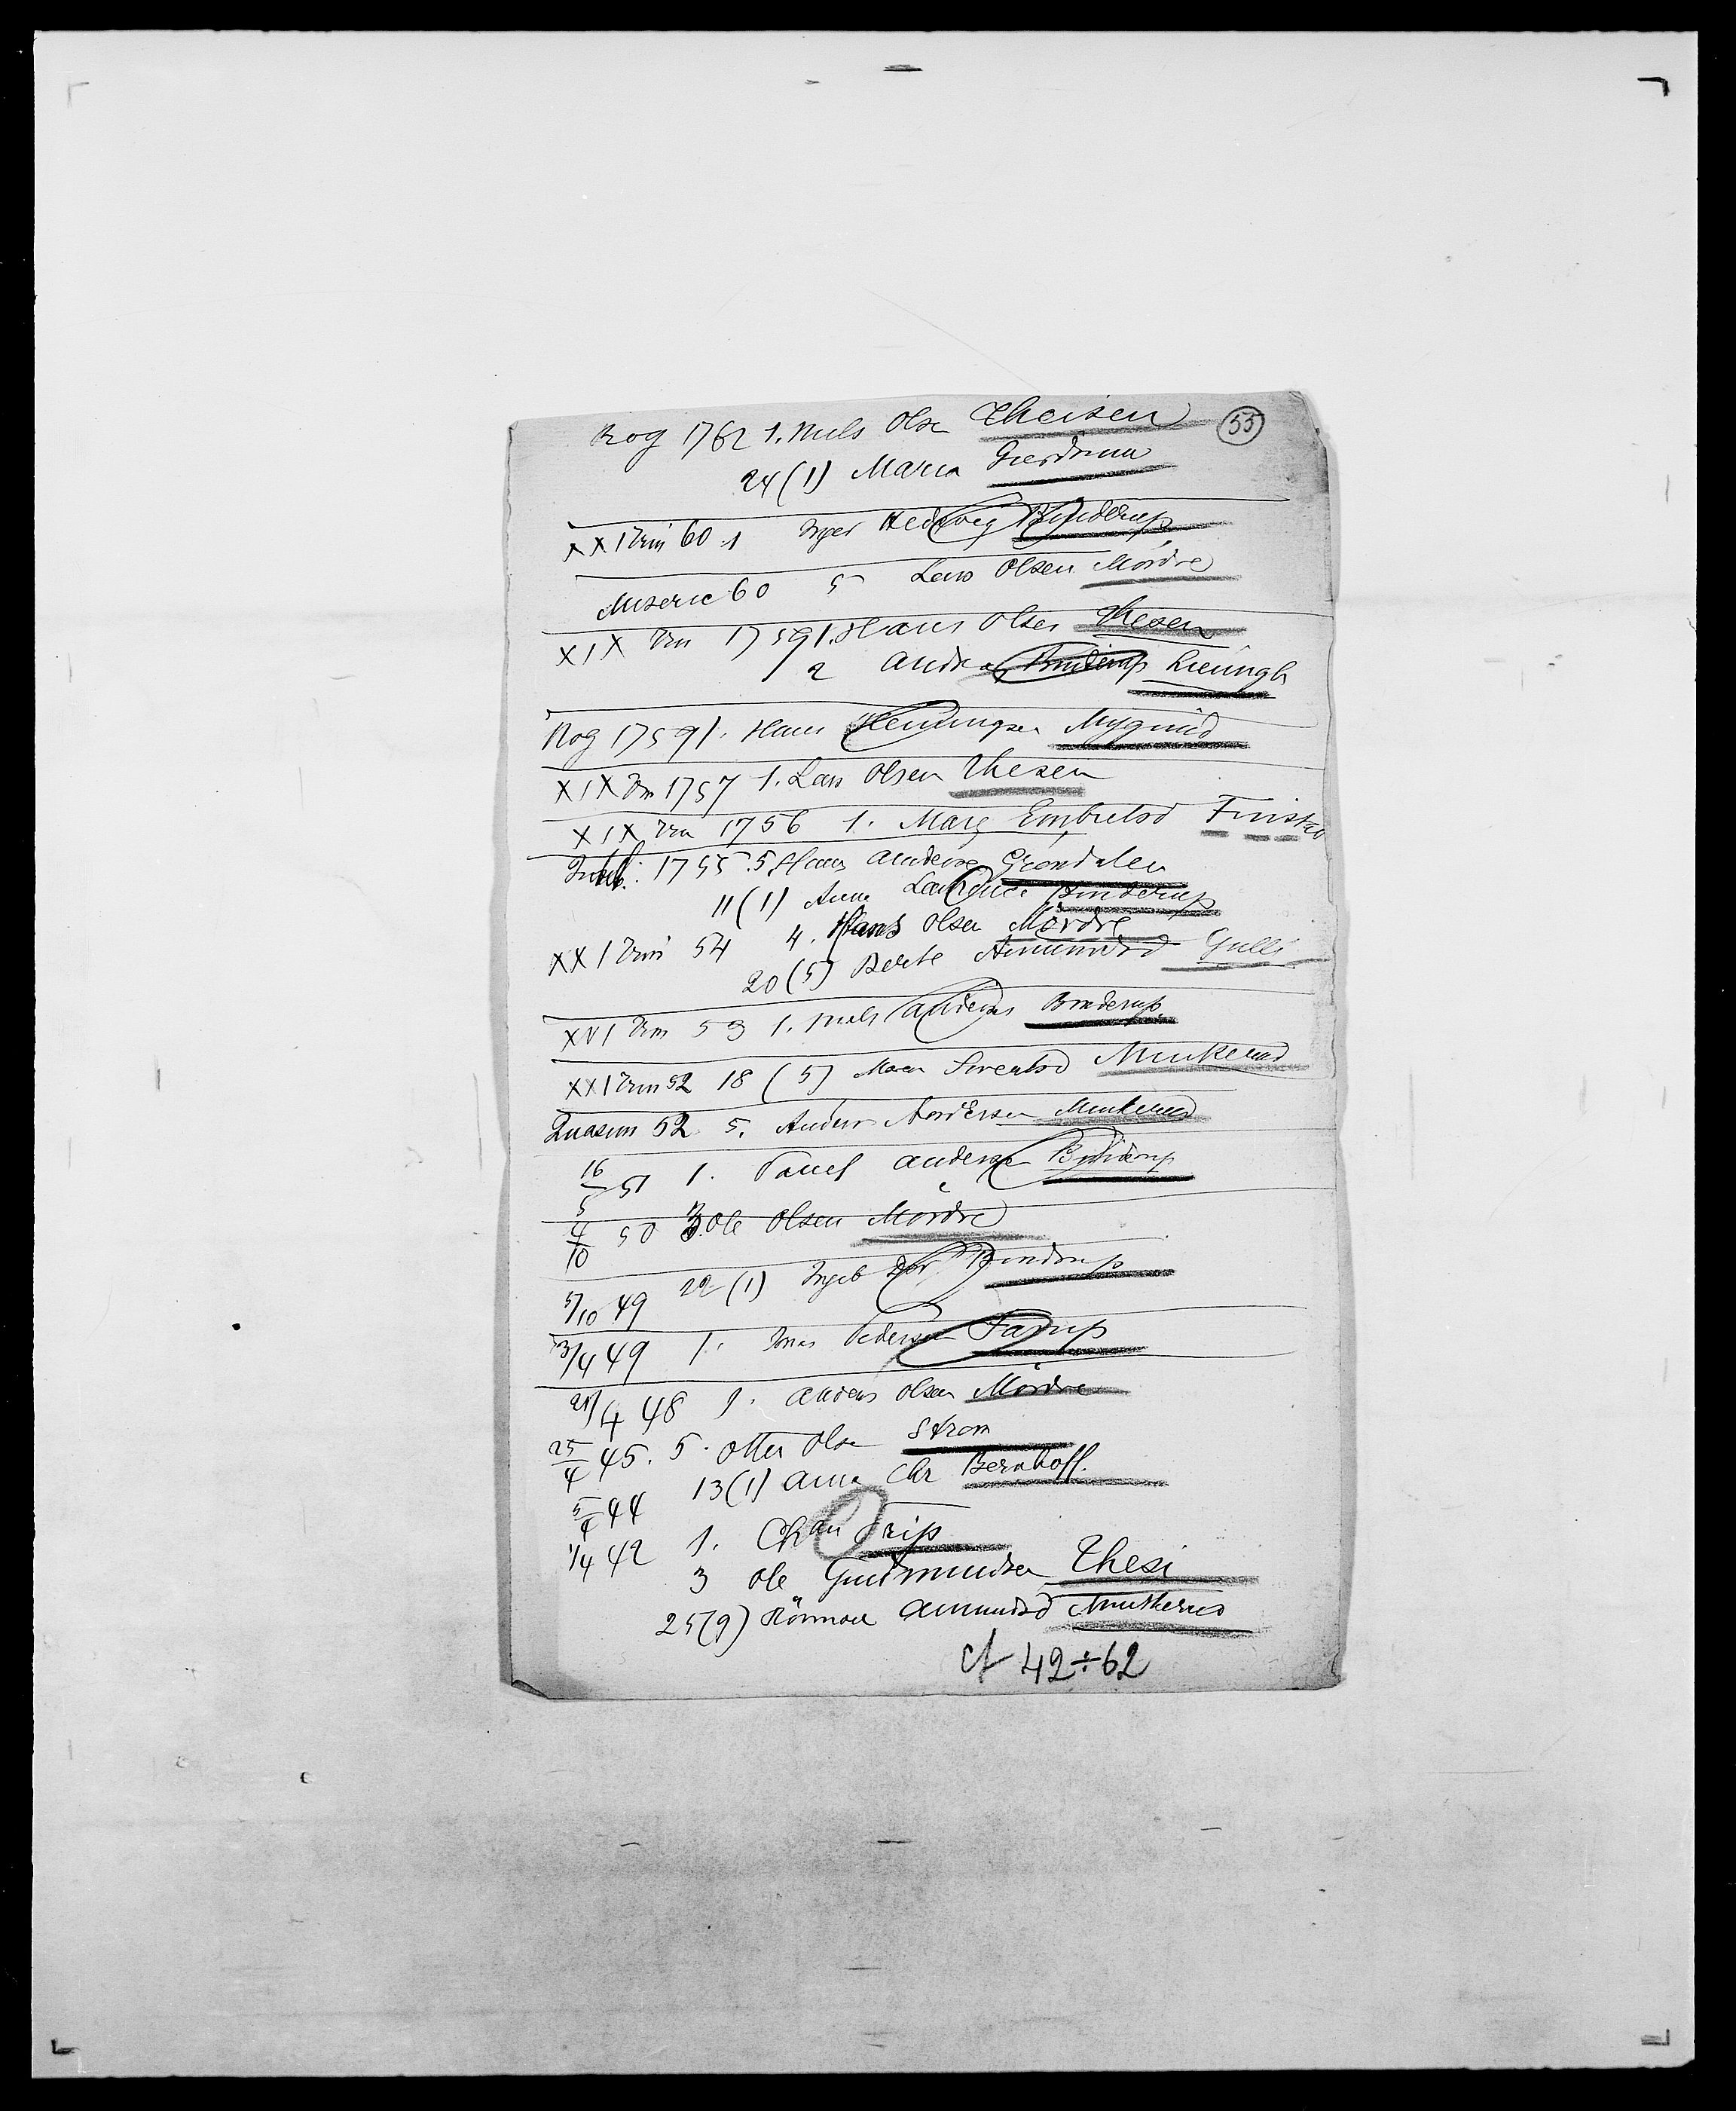 Rog 1762 1. Niels Olsen Theisen (55)
24 (1) Maria
XXI Trin 60 1 Inger Hedevig Binderup
Miseric 60 5 Lars Olsen Mördre
XIX Trin 1759 1. Hans Olsen Thesen
2 Andr Binderup
Rog 1759 1. Hans Henningsen Mygind
XIX Trin 1757 1. Lars Olsen Thesen
XIX Trin 1756 1. Marg Embretsd
1755 5 Hans Anderse Gröndalen
11 (1) Anna Binderup
XXI Trin 54 4. Hans Olsen Mördre
20 (5) Berte Amundsd Gulli
XVI Trin 53 1. Niels Anderses Binderup
XXI Trin 52 18 (5) Maren Munkerud
Quasim 52 5. Anders Andersen Munkerud
16/5 51 1. Poul Anderse Binderup
4/10 50 3. Ole Olsen Mördre
5/10 49 22 (1) Ingeb Binderup
3/4 49 1. Jens Pedersen
21/4 48 1. Anders Olsen Mördre
25/4 45. 5. Otter Olse Strøm
5/4 44 13 (1) Anna Chr Bernhoff.
1/4 42 1. Chan Trip
3 Ole Gudmundsen Thesi
25 (9) Rönnau Amundsd Munkerud
cf 42÷62